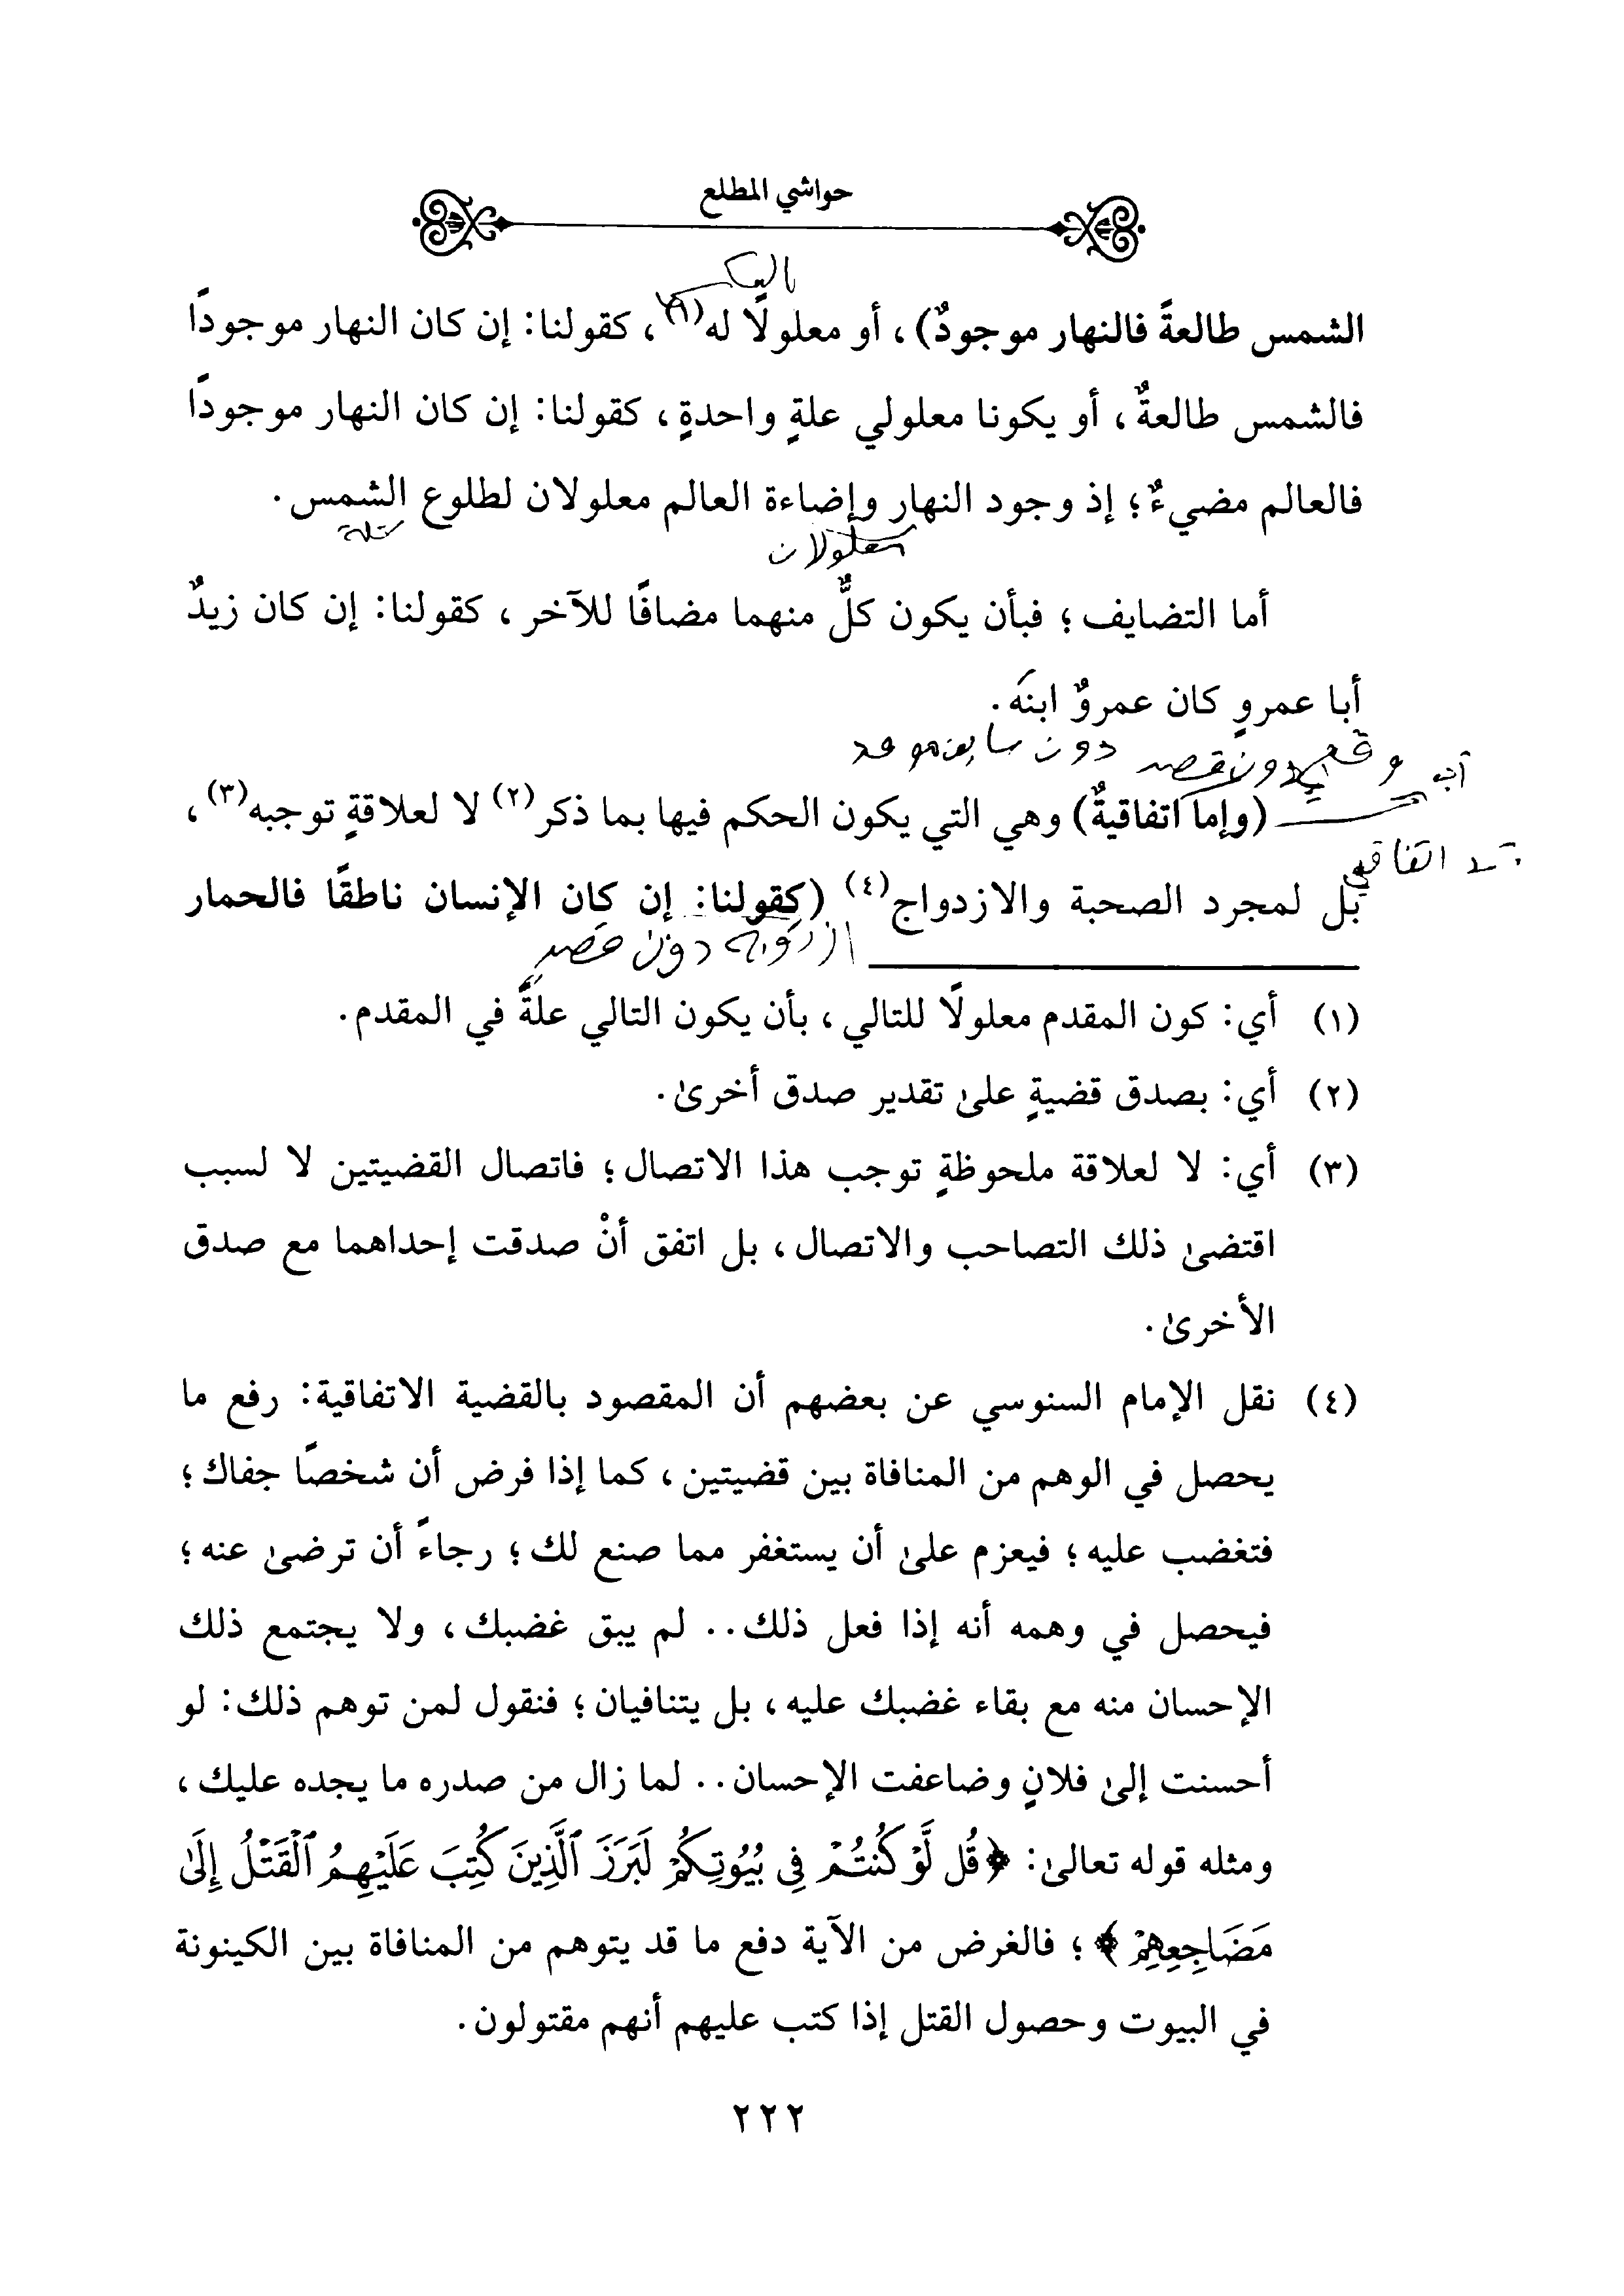 حواشي المطلع
الشمس طالعةً فالنهار موجودٌ)، أو معلولًا له(١)، كقولنا: إن كان النهار موجودًا
فالشمس طالعةٌ، أو يكونا معلولي علةٍ واحدةٍ، كقولنا: إن كان النهار موجودًا
فالعالم مضيءٌ؛ إذ وجود النهار وإضاءة العالم معلولان لطلوع الشمس.
معلولان
أما التضايف؛ فبأن يكون كلٌّ منهما مضافًا للآخر، كقولنا: إن كان زيدٌ
أبا عمروٍ كان عمروٌ ابنَه.
دون قصد دون سابق موعد
(وإما اتفاقيةٌ) وهي التي يكون الحكم فيها بما ذكر(٢) لا لعلاقةٍ توجبه(٣)،
اتفاقي
بل لمجرد الصحبة والازدواج(٤) (كقولنا: إن كان الإنسان ناطقًا فالحمار
دون قصد
(١) أي: كون المقدم معلولًا للتالي، بأن يكون التالي علةً في المقدم.
(٢) أي: بصدق قضيةٍ علىٰ تقدير صدق أخرىٰ.
(٣) أي: لا لعلاقة ملحوظةٍ توجب هذا الاتصال؛ فاتصال القضيتين لا لسبب
اقتضىٰ ذلك التصاحب والاتصال، بل اتفق أنْ صدقت إحداهما مع صدق
الأخرىٰ.
(٤) نقل الإمام السنوسي عن بعضهم أن المقصود بالقضية الاتفاقية: رفع ما
يحصل في الوهم من المنافاة بين قضيتين، كما إذا فرض أن شخصًا جفاك؛
فتغضب عليه؛ فيعزم علىٰ أن يستغفر مما صنع لك؛ رجاءً أن ترضىٰ عنه؛
فيحصل في وهمه أنه إذا فعل ذلك.. لم يبق غضبك، ولا يجتمع ذلك
الإحسان منه مع بقاء غضبك عليه، بل يتنافيان؛ فنقول لمن توهم ذلك: لو
أحسنت إلىٰ فلانٍ وضاعفت الإحسان.. لما زال من صدره ما يجده عليك،
ومثله قوله تعالىٰ: ﴿قُل لَّوْ كُنتُمْ فِي بُيُوتِكُمْ لَبَرَزَ ٱلَّذِينَ كُتِبَ عَلَيْهِمُ ٱلْقَتْلُ إِلَىٰ
مَضَاجِعِهِمْ﴾؛ فالغرض من الآية دفع ما قد يتوهم من المنافاة بين الكينونة
في البيوت وحصول القتل إذا كتب عليهم أنهم مقتولون.
٢٢٢